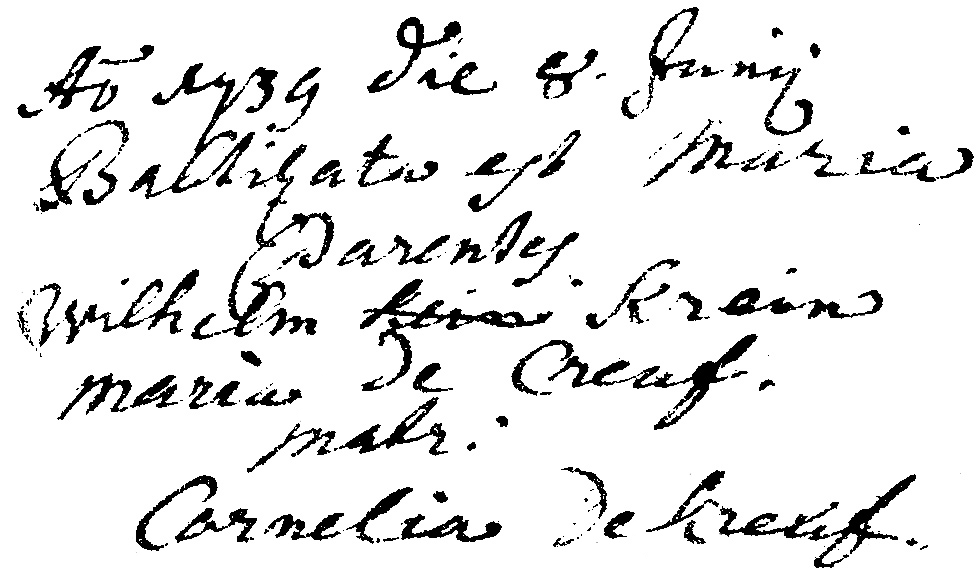 Aō 1739 Die 8. Junij
Baptizata est Maria
Parentes
Wilhelm Krein
maria De Creuf.
matr.
Cornelia De kreuf.